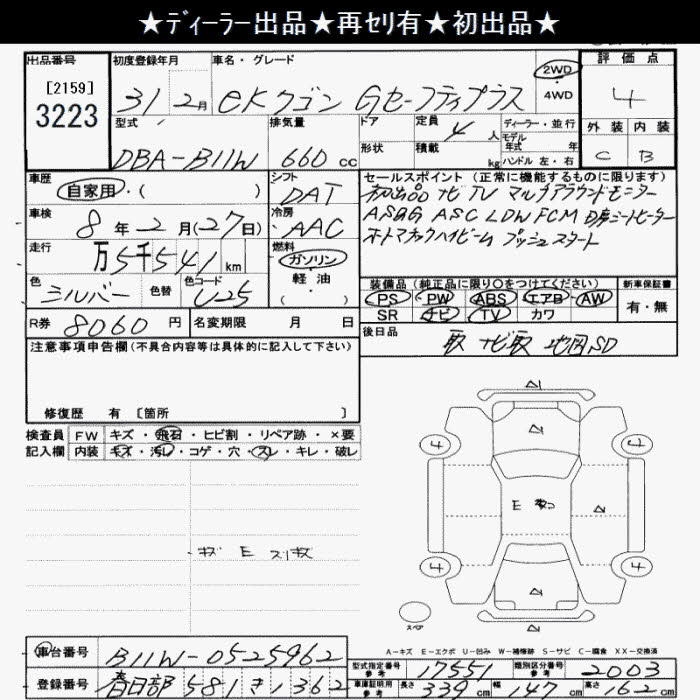 ★ディーラー出品★再セリ有★初出品★
出品番号
[2159]
3223
初度登録年月
31 2月
車名・グレード
eKワゴン Gセーフティプラス
2WD
4WD
評価点
4
型式
DBA-B11W
排気量
660 cc
ドア
形状
定員
4 人
積載
kg
ディーラー・並行
モデル年式 年
ハンドル 左・右
外装 内装
C B
車歴
自家用・( )
シフト
DAT
セールスポイント(正常に機能するものに限ります)
初出品 ナビ TV マルチアラウンドモニター
ASGG ASC LDW FCM D席シートヒーター
オートマチックハイビーム プッシュスタート
車検
8年2月(27日)
冷房
AAC
走行
万5千541km
燃料
ガソリン・
軽油
( )
色
シルバー
色替
色コード
U25
装備品(純正品に限り○をつけてください)
PS PW ABS エアB AW
SR ナビ TV カワ
新車保証書
有・無
R券 8060円
名変期限 月 日
後日品
取 ナビ取 地図SD
注意事項申告欄(不具合内容等は具体的に記入して下さい)
修復歴 有 [箇所 ]
検査員
記入欄
FW キズ・飛石・ヒビ割・リペア跡・×要
内装 キズ・汚れ・コゲ・穴・スレ・キレ・破レ
キズ E スリ傷
A1
A
4 4
E
A
A
4 4
A
A
スペア
A-キズ E-エクボ U-凹み W-補修跡 S-サビ C-腐食 XX-交換済
車台番号 B11W-0525962
登録番号 春日部 581 き 1362
型式指定番号
参考
17551
類別区分番号
参考
2003
車庫証明用
参考
長さ 339 cm 幅 147 cm 高さ 162 cm